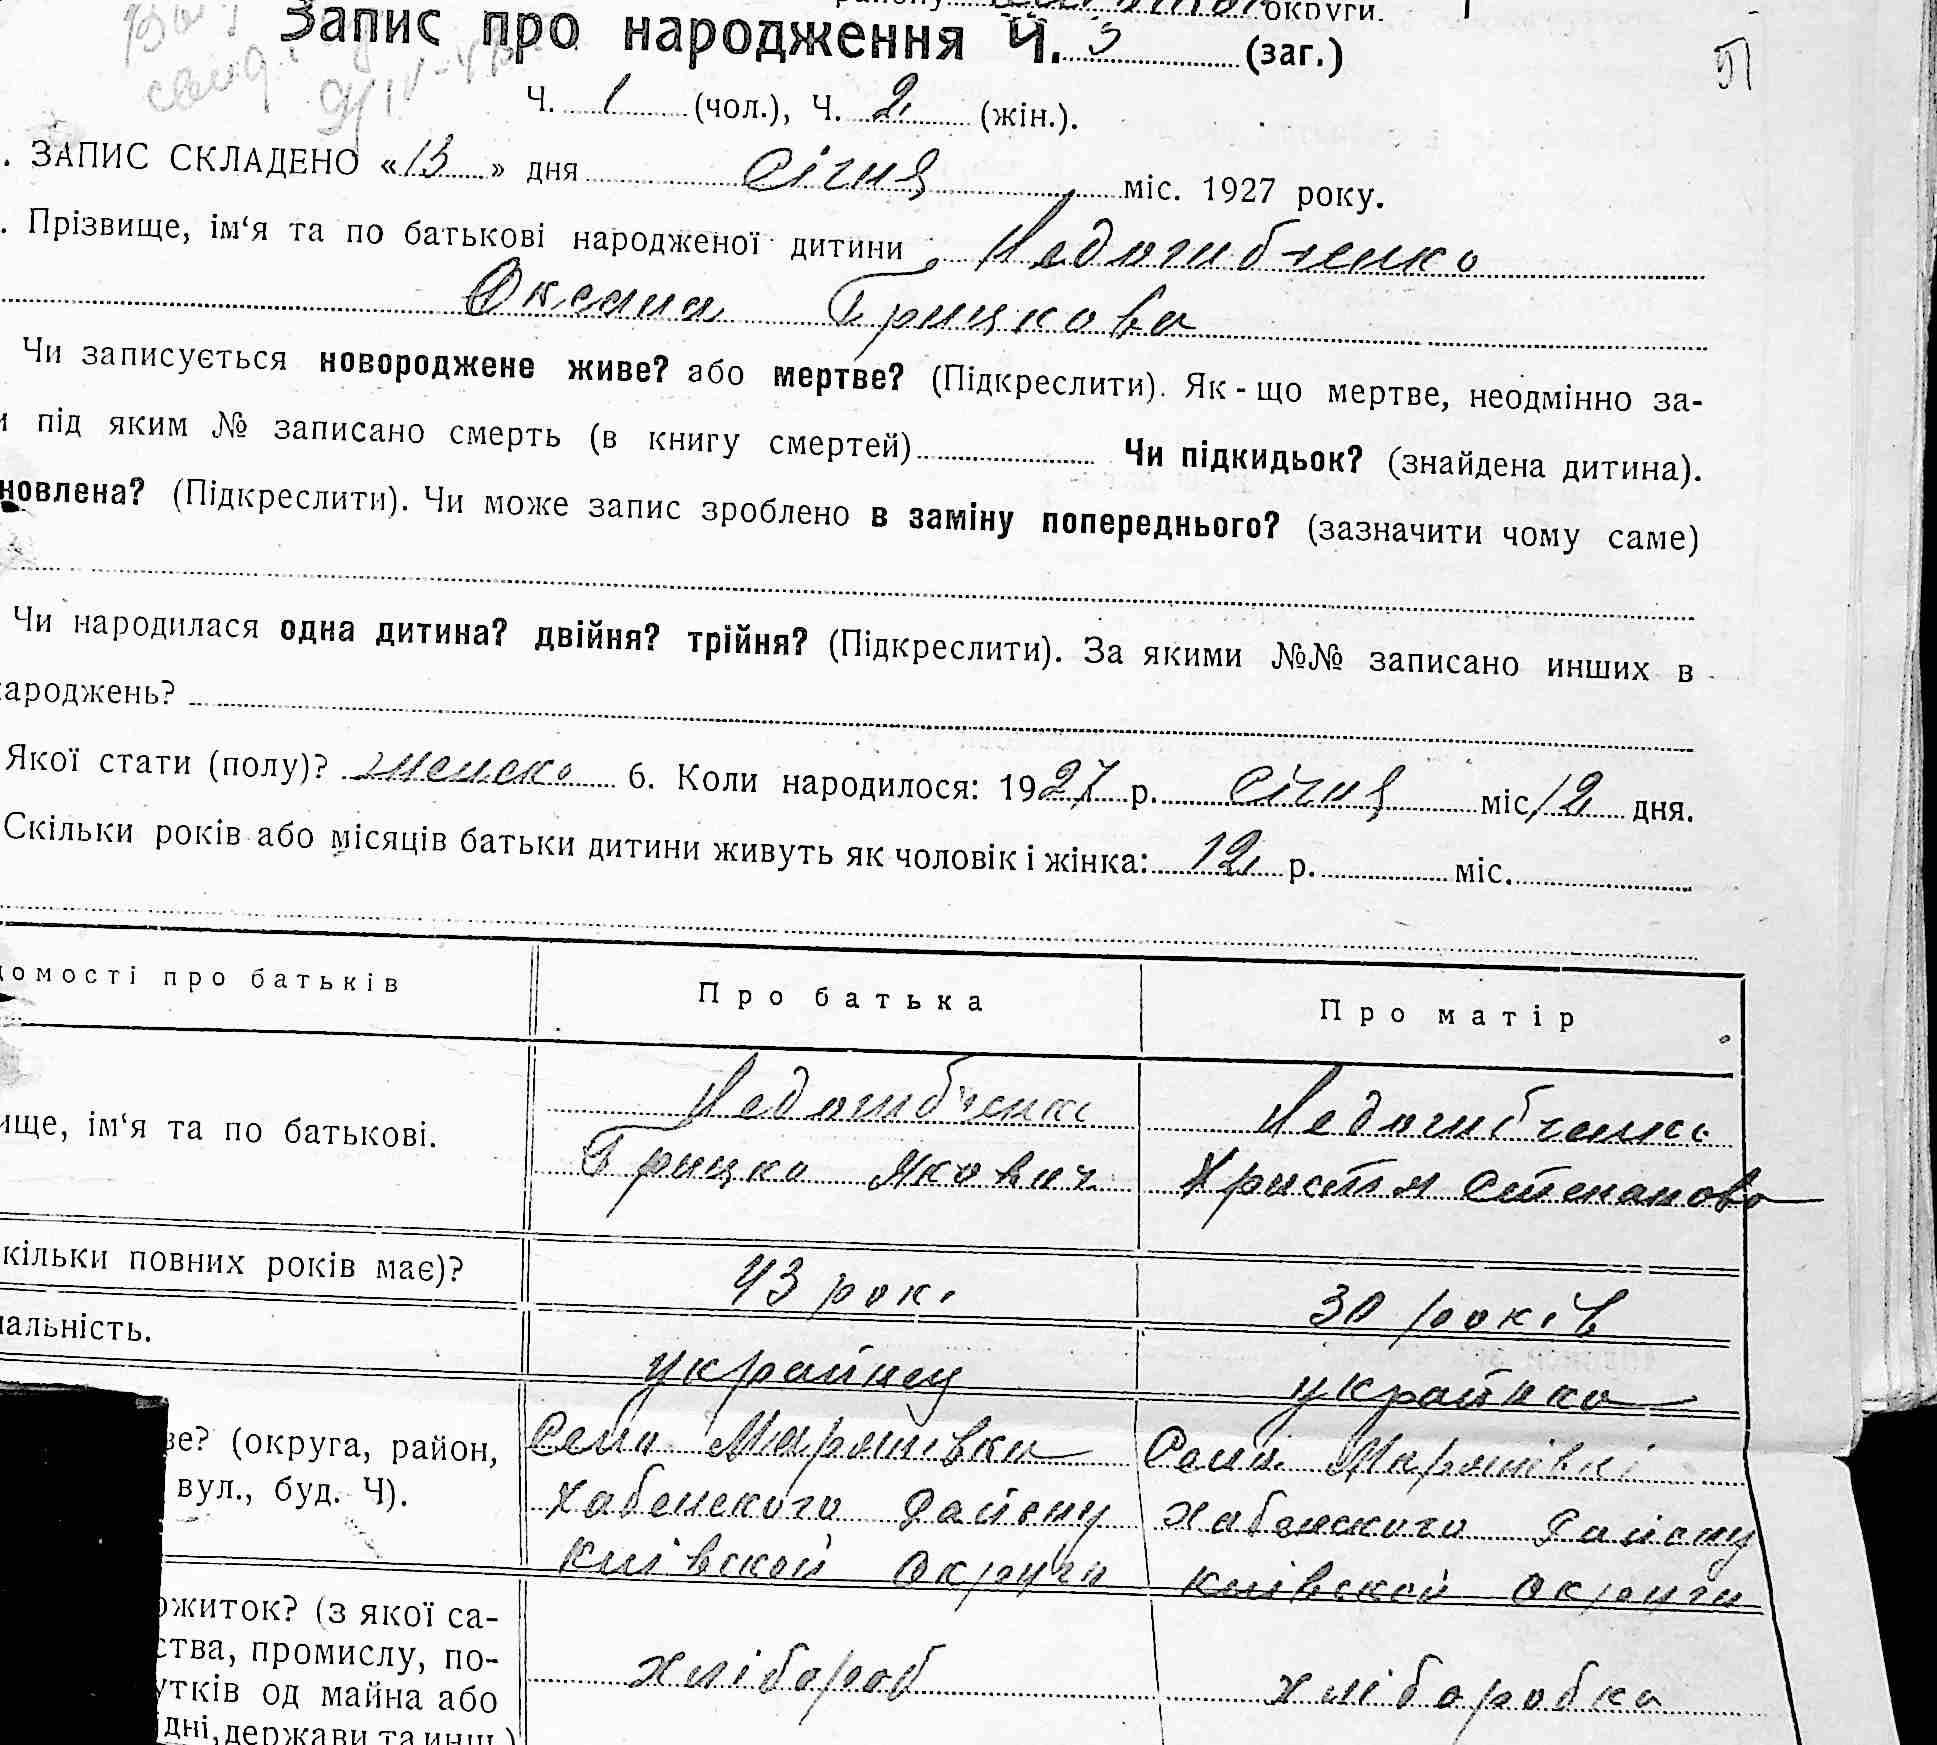 округи.
Запис про народження Ч. 3 (заг.)
Ч. 1 (чол.), Ч. 2 (жін.).
. ЗАПИС СКЛАДЕНО «13» дня січня міс. 1927 року.
. Прізвище, ім‘я та по батькові народженої дитини Недогибченко
Оксана Грицкова
Чи записується новороджене живе? або мертве? (Підкреслити). Як-що мертве, неодмінно за-
и під яким № записано смерть (в книгу смертей) Чи підкидьок? (знайдена дитина).
новлена? (Підкреслити). Чи може запис зроблено в заміну попереднього? (зазначити чому саме)
Чи народилася одна дитина? двійня? трійня? (Підкреслити). За якими №№ записано инших в
ароджень?
Якої стати (полу)? женско 6. Коли народилося: 1927 р. січня міс. 12 дня.
Скільки років або місяців батьки дитини живуть як чоловік і жінка: 12 р. міс.
домості про батьків Про батька Про матір
Недогибченко Недогибченко
ище, ім‘я та по батькові. Грицко Якович Христя Степанова
кільки повних років має)? 43 рокі 30 років
альність. украйнец украйнка
ве? (округа, район, Село Марянівка Село Марянівкі
вул., буд. Ч). Хабенского Району Хабенского Району
Київской Округи Київской Округи
ожиток? (з якої са-
ства, промислу, по- хлібороб хлібо­робка
утків од майна або
ідні, держави та инш.)